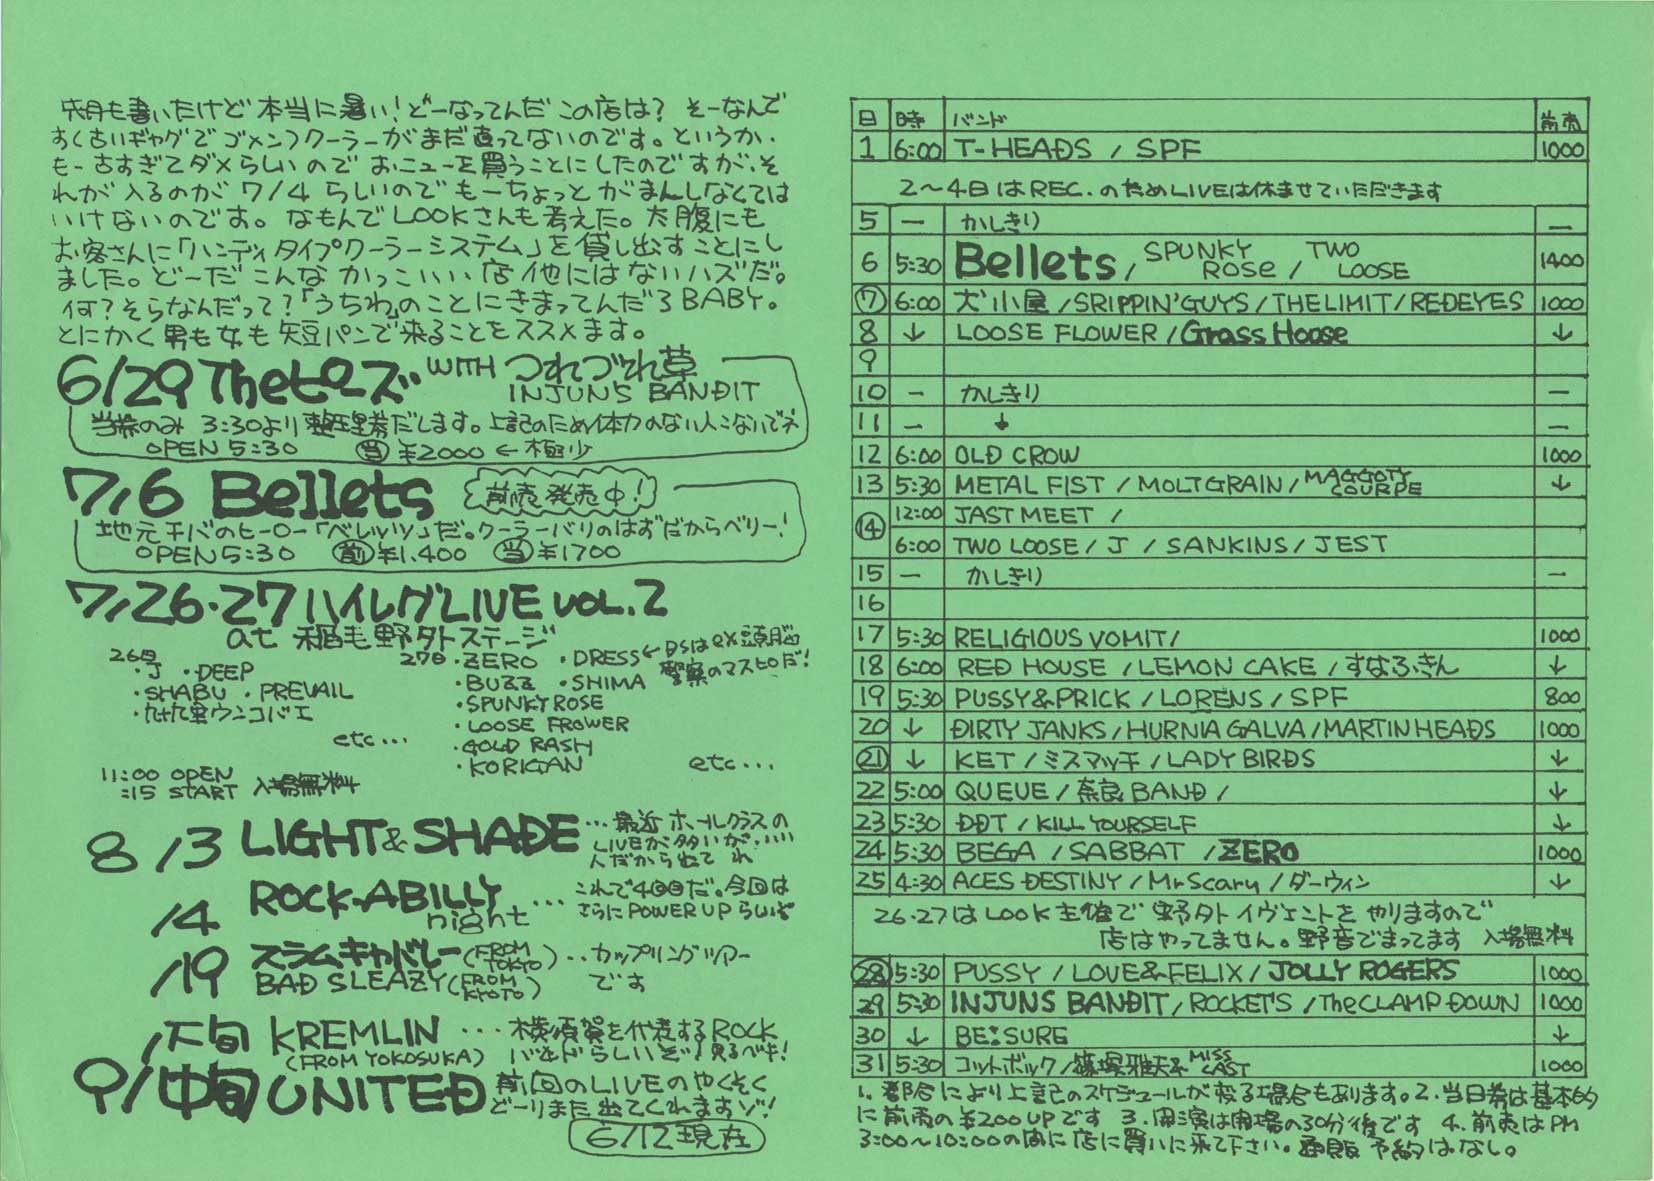 先月も書いたけど本当に暑い！どーなってんだこの店は？そーなんで
すく古いギャグでゴメンフクーラーがまだ直ってないのです。というか、
もー古すぎてダメらしいのでおニューを買うことにしたのですが、そ
れが入るのが7/4らしいのでもーちょっとがまんしなくては
いけないのです。なもんでLOOKさんも考えた。太腹にも
お客さんに「ハンディタイプクーラーシステム」を貸し出すことにし
ました。どーだこんなかっこいい店他にはないハズだ。
何？そらなんだって？「うちわ」のことにきまってんだろBABY。
とにかく男も女も短パンで来ることをススメます。
6/29 Theピーズ WITH つれづれ草
INJUN'S BANDIT
当券のみ 3:30より整理券だします。上記のため体力のない人こないでネ
OPEN 5:30 当 ¥2000 ← 極少
7/6 Bellets 前売発売中！
地元千バのヒーロー「ベレッツ」だ。クーラーバリのはずだからベリー！
OPEN 5:30 前 ¥1,400 当 ¥1700
7/26・27 ハイレグLIVE VOL.2
at 稲毛野外ステージ
26日
・J ・DEEP
・SHABU ・PREVAIL
・九十九里ウンコバエ
etc...
27日 ・ZERO ・DRESS ← DSはex頭脳
警察のマスヒロだ！
・BUZZ ・SHIMA
・SPUNKY ROSE
・LOOSE FROWER
・GOLD RASH
・KORIGAN etc...
11:00 OPEN
:15 START 入場無料
8/3 LIGHT & SHADE ...最近ホールクラスの
LIVEが多いが、
んだから出て
/4 ROCK-ABILLY night ...これで4回目だ。今回は
さらにPOWER UPらしいぞ
/19 スラムキャバレー (FROM TOKYO) ..カップリングツアー
BAD SLEAZY (FROM KYOTO) です
/下旬 KREMLIN ...横須賀を代表するROCK
(FROM YOKOSUKA) バンドらしいぞ！見るべキ！
9/中旬 UNITED 前回のLIVEのやくそく
どーりまた出てくれますゾ！
6/12現在
日 時 バンド 前売
1 6:00 T-HEADS / SPF 1000
2〜4日はREC.のためLIVEは休ませていただきます
5 ー かしきり ー
6 5:30 Bellets / SPUNKY ROSE / TWO LOOSE 1400
⑦ 6:00 犬小屋 / SRIPPIN'GUYS / THE LIMIT / REDEYES 1000
8 ↓ LOOSE FLOWER / Grass House ↓
9
10 ー かしきり ー
11 ー ↓ ー
12 6:00 OLD CROW 1000
13 5:30 METAL FIST / MOLTGRAIN / MAGGOTY COURPE ↓
⑭ 12:00 JAST MEET /
6:00 TWO LOOSE / J / SANKINS / JEST
15 ー かしきり ー
16
17 5:30 RELIGIOUS VOMIT / 1000
18 6:00 RED HOUSE / LEMON CAKE / すなふきん ↓
19 5:30 PUSSY&PRICK / LORENS / SPF 800
20 ↓ DIRTY JANKS / HURNIA GALVA / MARTIN HEADS 1000
㉑ ↓ KET / ミスマッチ / LADY BIRDS ↓
22 5:00 QUEUE / 奈良BAND / ↓
23 5:30 DDT / KILL YOURSELF ↓
24 5:30 BEGA / SABBAT / ZERO 1000
25 4:30 ACES DESTINY / Mr Scary / ダーウィン ↓
26・27はLOOK主催で野外イヴェントをやりますので
店はやってません。野音でまってます 入場無料
㉘ 5:30 PUSSY / LOVE&FELIX / JOLLY ROGERS 1000
29 5:30 INJUNS BANDIT / ROCKETS / The CLAMP DOWN 1000
30 ↓ BE:SURE ↓
31 5:30 コットボック / 篠塚雅夫& MISS CAST 1000
1. 都合により上記のスケジュールが変る場合もあります。2. 当日券は基本的
に前売の¥200UPです 3. 開演は開場の30分後です 4. 前売はPM
3:00〜10:00の間に店に買いに来て下さい。通販 予約はなし。